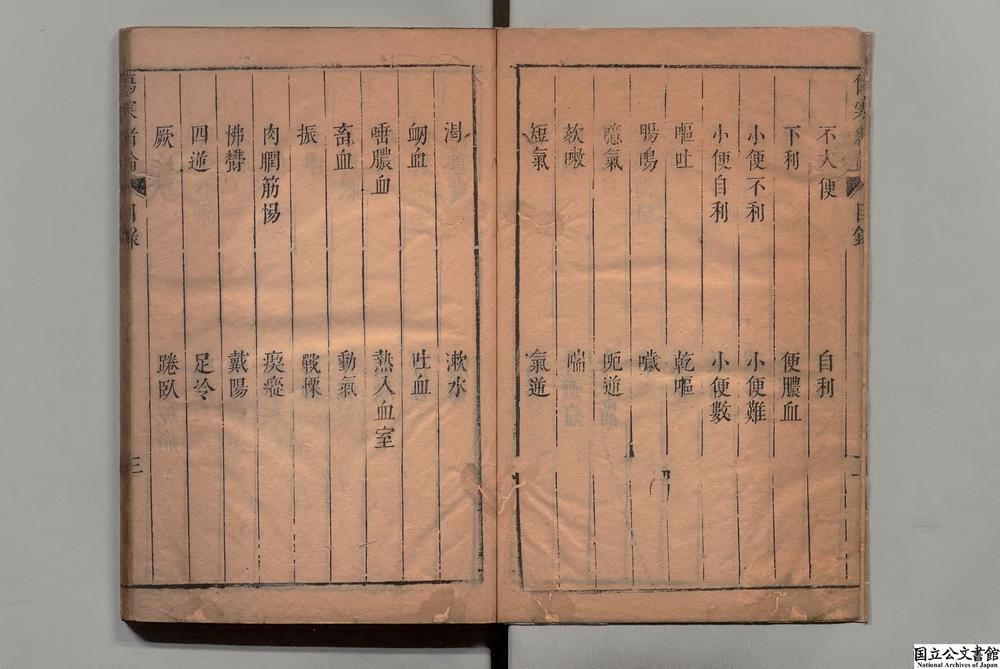 不大便　自利
下利　便膿血
小便不利　小便難
小便自利　小便數
嘔吐　乾嘔
腸鳴　噦
噫氣　呃逆
欬嗽　喘
短氣　氣逆
目錄
渴　漱水
衂血　吐血
唾膿血　熱入血室
畜血　動氣
振　戰慄
肉瞤筋惕　瘈瘲
怫鬱　戴陽
四逆　足冷
厥　踡臥
傷寒緒論　目錄　三
国立公文書館
National Archives of Japan